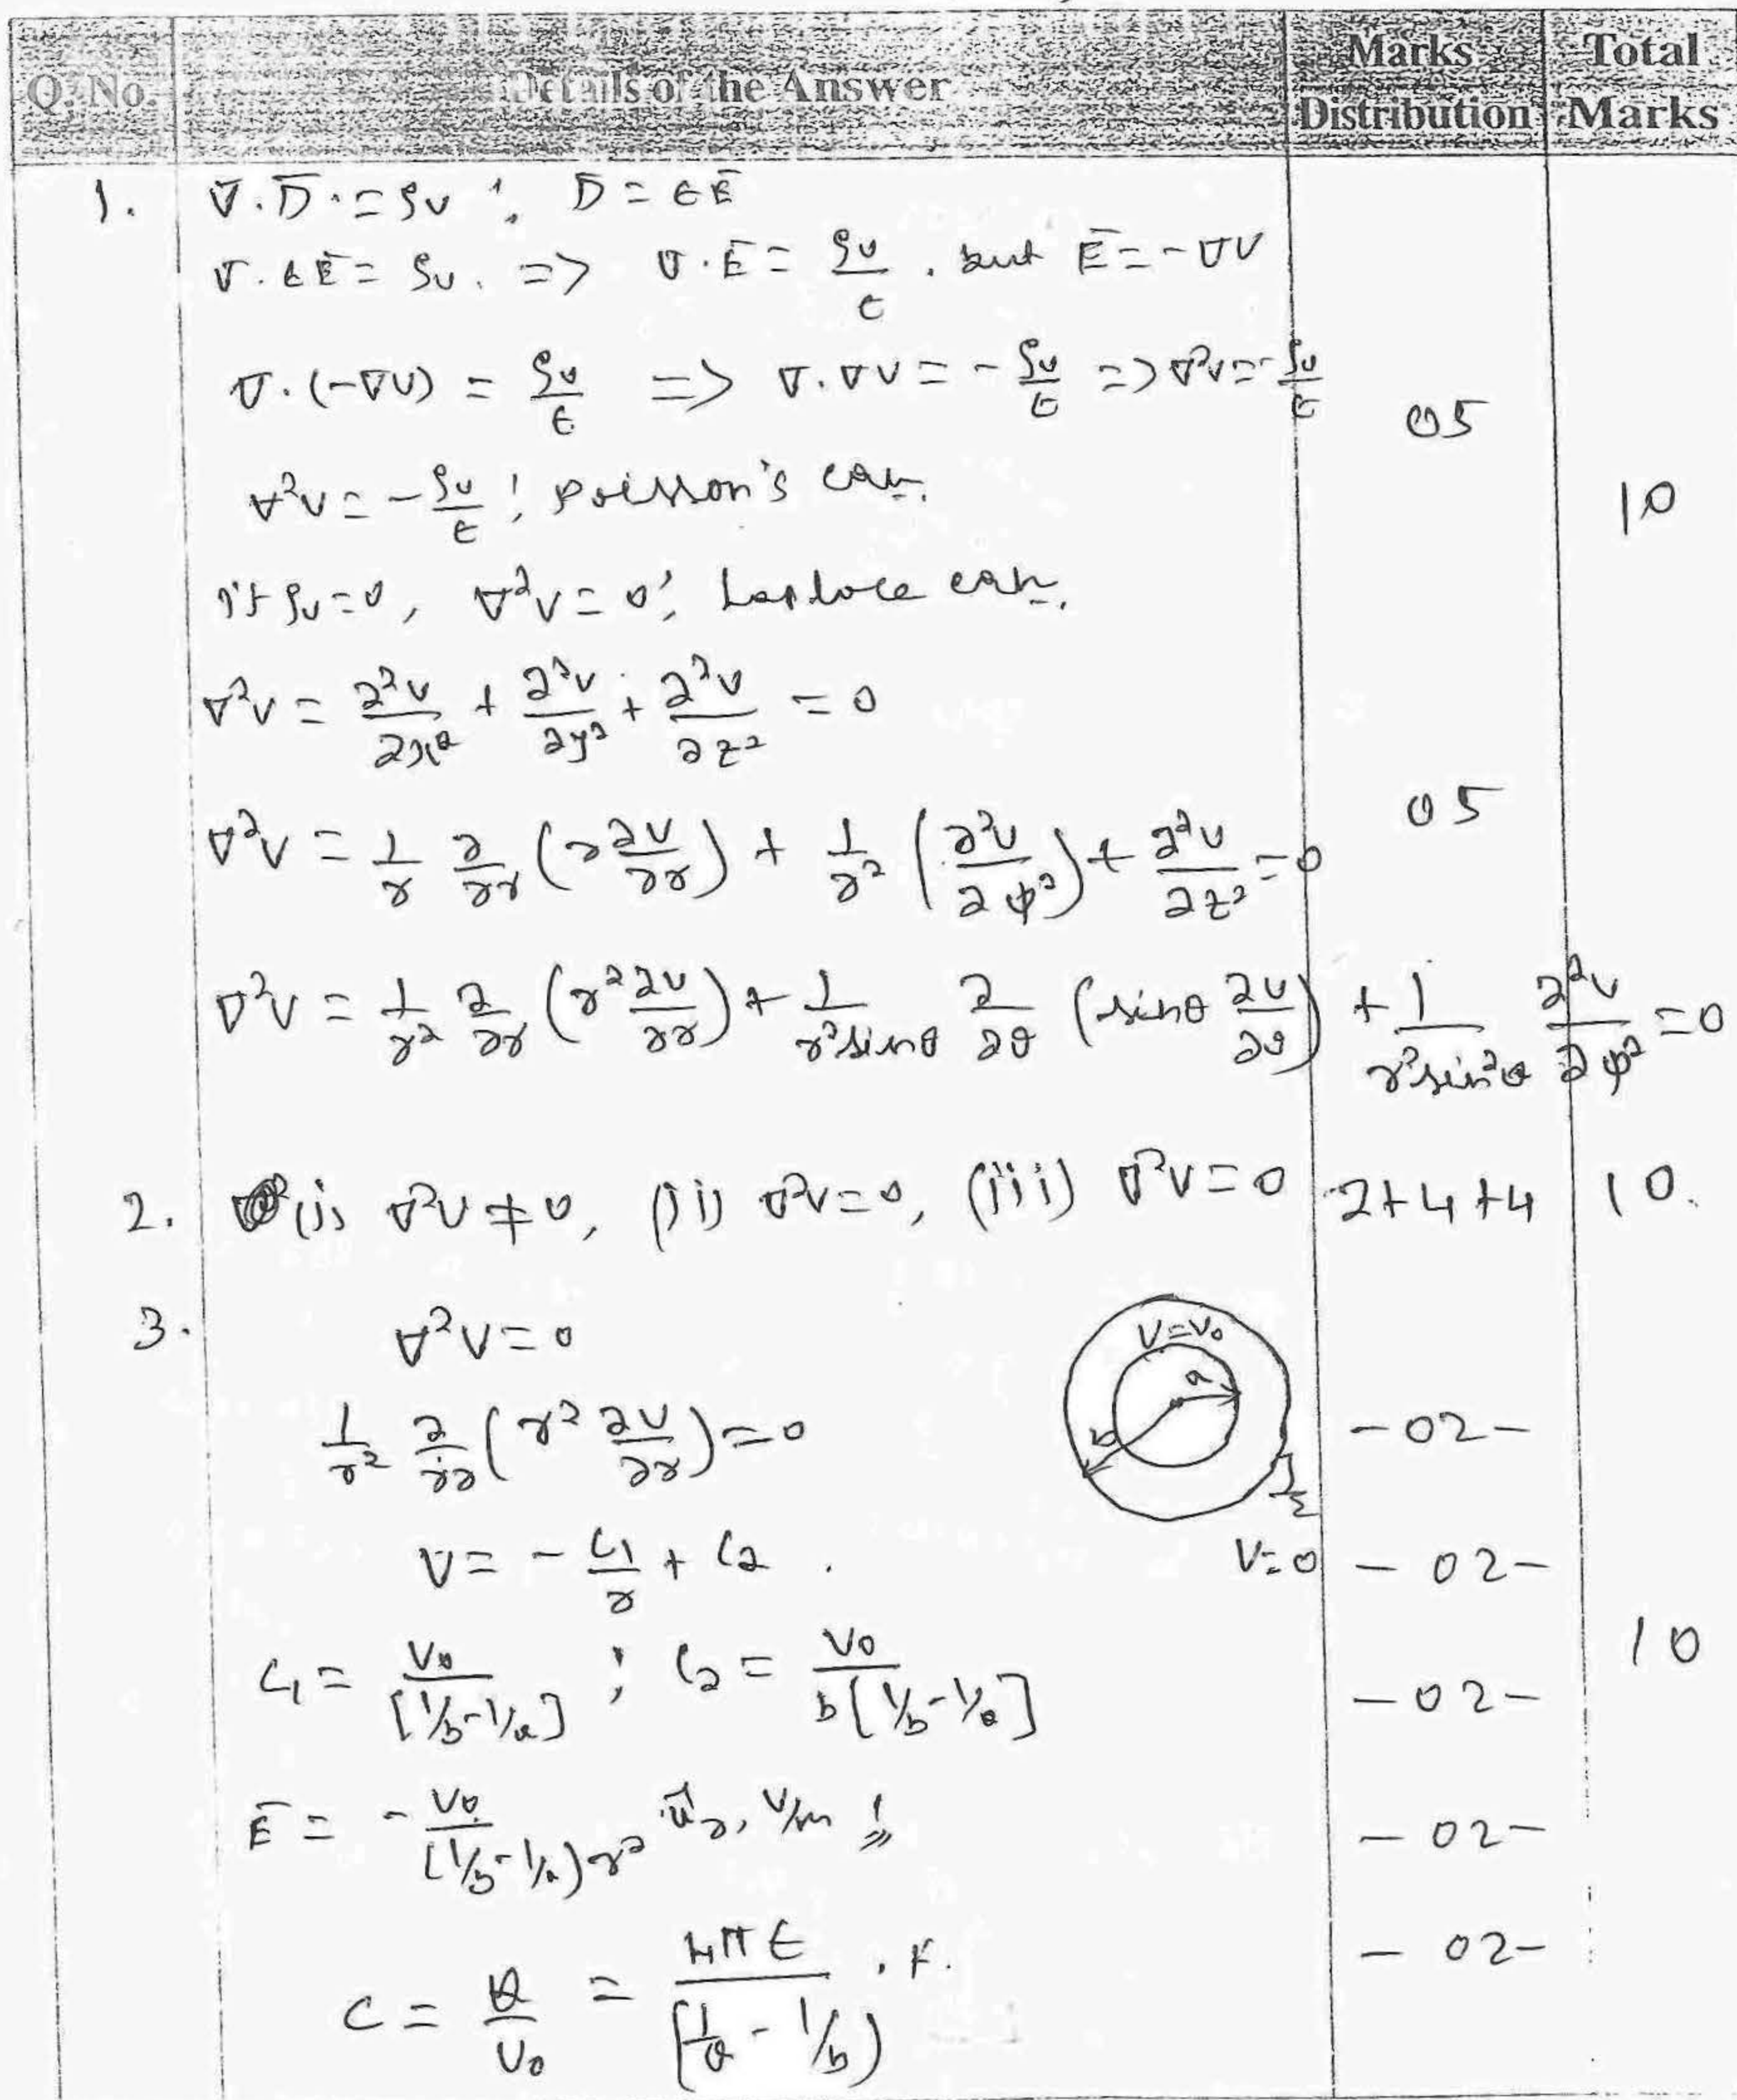 Q. No. Details of the Answer Marks Distribution Total Marks
1. ∇.D̄ = ρv ; D̄ = εĒ
∇.εĒ = ρv. => ∇.Ē = ρv/ε . but Ē = -∇V
∇.(-∇V) = ρv/ε => ∇.∇V = -ρv/ε => ∇²V = -ρv/ε 05
∇²V = -ρv/ε ; poisson's eqn. 10
if ρv=0, ∇²V = 0; Laplace eqn.
∇²V = ∂²V/∂x² + ∂²V/∂y² + ∂²V/∂z² = 0
∇²V = 1/r ∂/∂r (r ∂V/∂r) + 1/r² (∂²V/∂φ²) + ∂²V/∂z² = 0 05
∇²V = 1/r² ∂/∂r (r² ∂V/∂r) + 1/r²sinθ ∂/∂θ (sinθ ∂V/∂θ) + 1/r²sin²θ ∂²V/∂φ² = 0
2. (i) ∇²V ≠ 0, (ii) ∇²V = 0, (iii) ∇²V = 0 2+4+4 10.
3. ∇²V = 0
V=V₀
a
b
1/r² ∂/∂r (r² ∂V/∂r) = 0 -02-
ε
V = -C₁/r + C₂ . V=0 -02-
C₁ = V₀/[1/b-1/a] ; C₂ = V₀/b[1/b-1/a] -02- 10
Ē = -V₀/(1/b-1/a)r² ā_r, V/m -02-
C = Q/V₀ = 4πε/(1/a - 1/b) . F. -02-